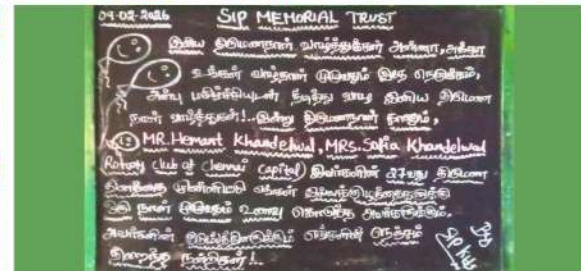 09-02-2026 SIP MEMORIAL TRUST
இனிய திருமணநாள் வாழ்த்துக்கள் அண்ணா, அக்கா
உங்கள் வாழ்நாள் முழுவதும் இதே நெருக்கம்,
அன்பு மகிழ்ச்சியுடன் நீடித்து வாழ இனிய திருமண
நாள் வாழ்த்துகள்!.. இன்று திருமணநாள் காணும்,
MR. Hemant Khandelwal, MRS. Sofia Khandelwal
Rotary Club of Chennai Capital) இவர்களின் 27வது திருமண
தினத்தை முன்னிட்டு எங்கள்
ஒரு நாள் முழுவதும் உணவு கொடுத்த அவர்களுக்கும்,
அவர்களின் குடும்பத்தினருக்கும் எங்களின் நெஞ்சம்
நிறைந்த நன்றிகள்!..
By
SIP kids